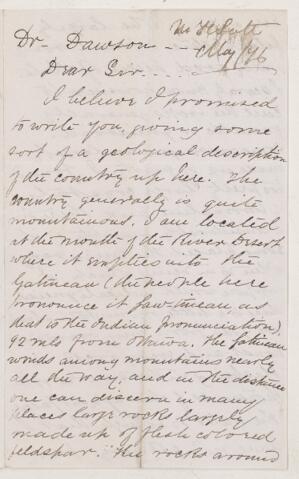 May 1/76
Dr. Dawson - -
Dear Sir - - - -
I believe I promised
to write you, giving some
sort of a geological description
of the country up here. The
country generally is quite
mountainous. I am located
at the mouth of the River Desert
where it empties into the
Gatineau (the people here
pronounce it
to the Indian pronunciation)
92 mls from Ottawa. The Gatineau
winds among mountains nearly
all the way, and in the distance
one can discern in many
places large rocks largely
made up of flesh colored
feldspar. The rocks around